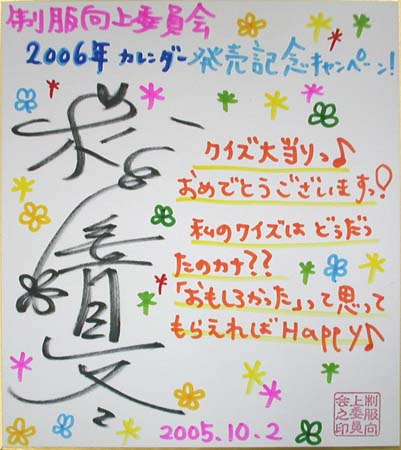 制服向上委員会
2006年 カレンダー 発売記念キャンペーン!
クイズ大当りっ♪
おめでとうございますっ!
私のクイズは どうだっ
たのカナ??
「おもしろかった」って思って
もらえればHappy♪
2005.10.2
制服向
上委員
会之印